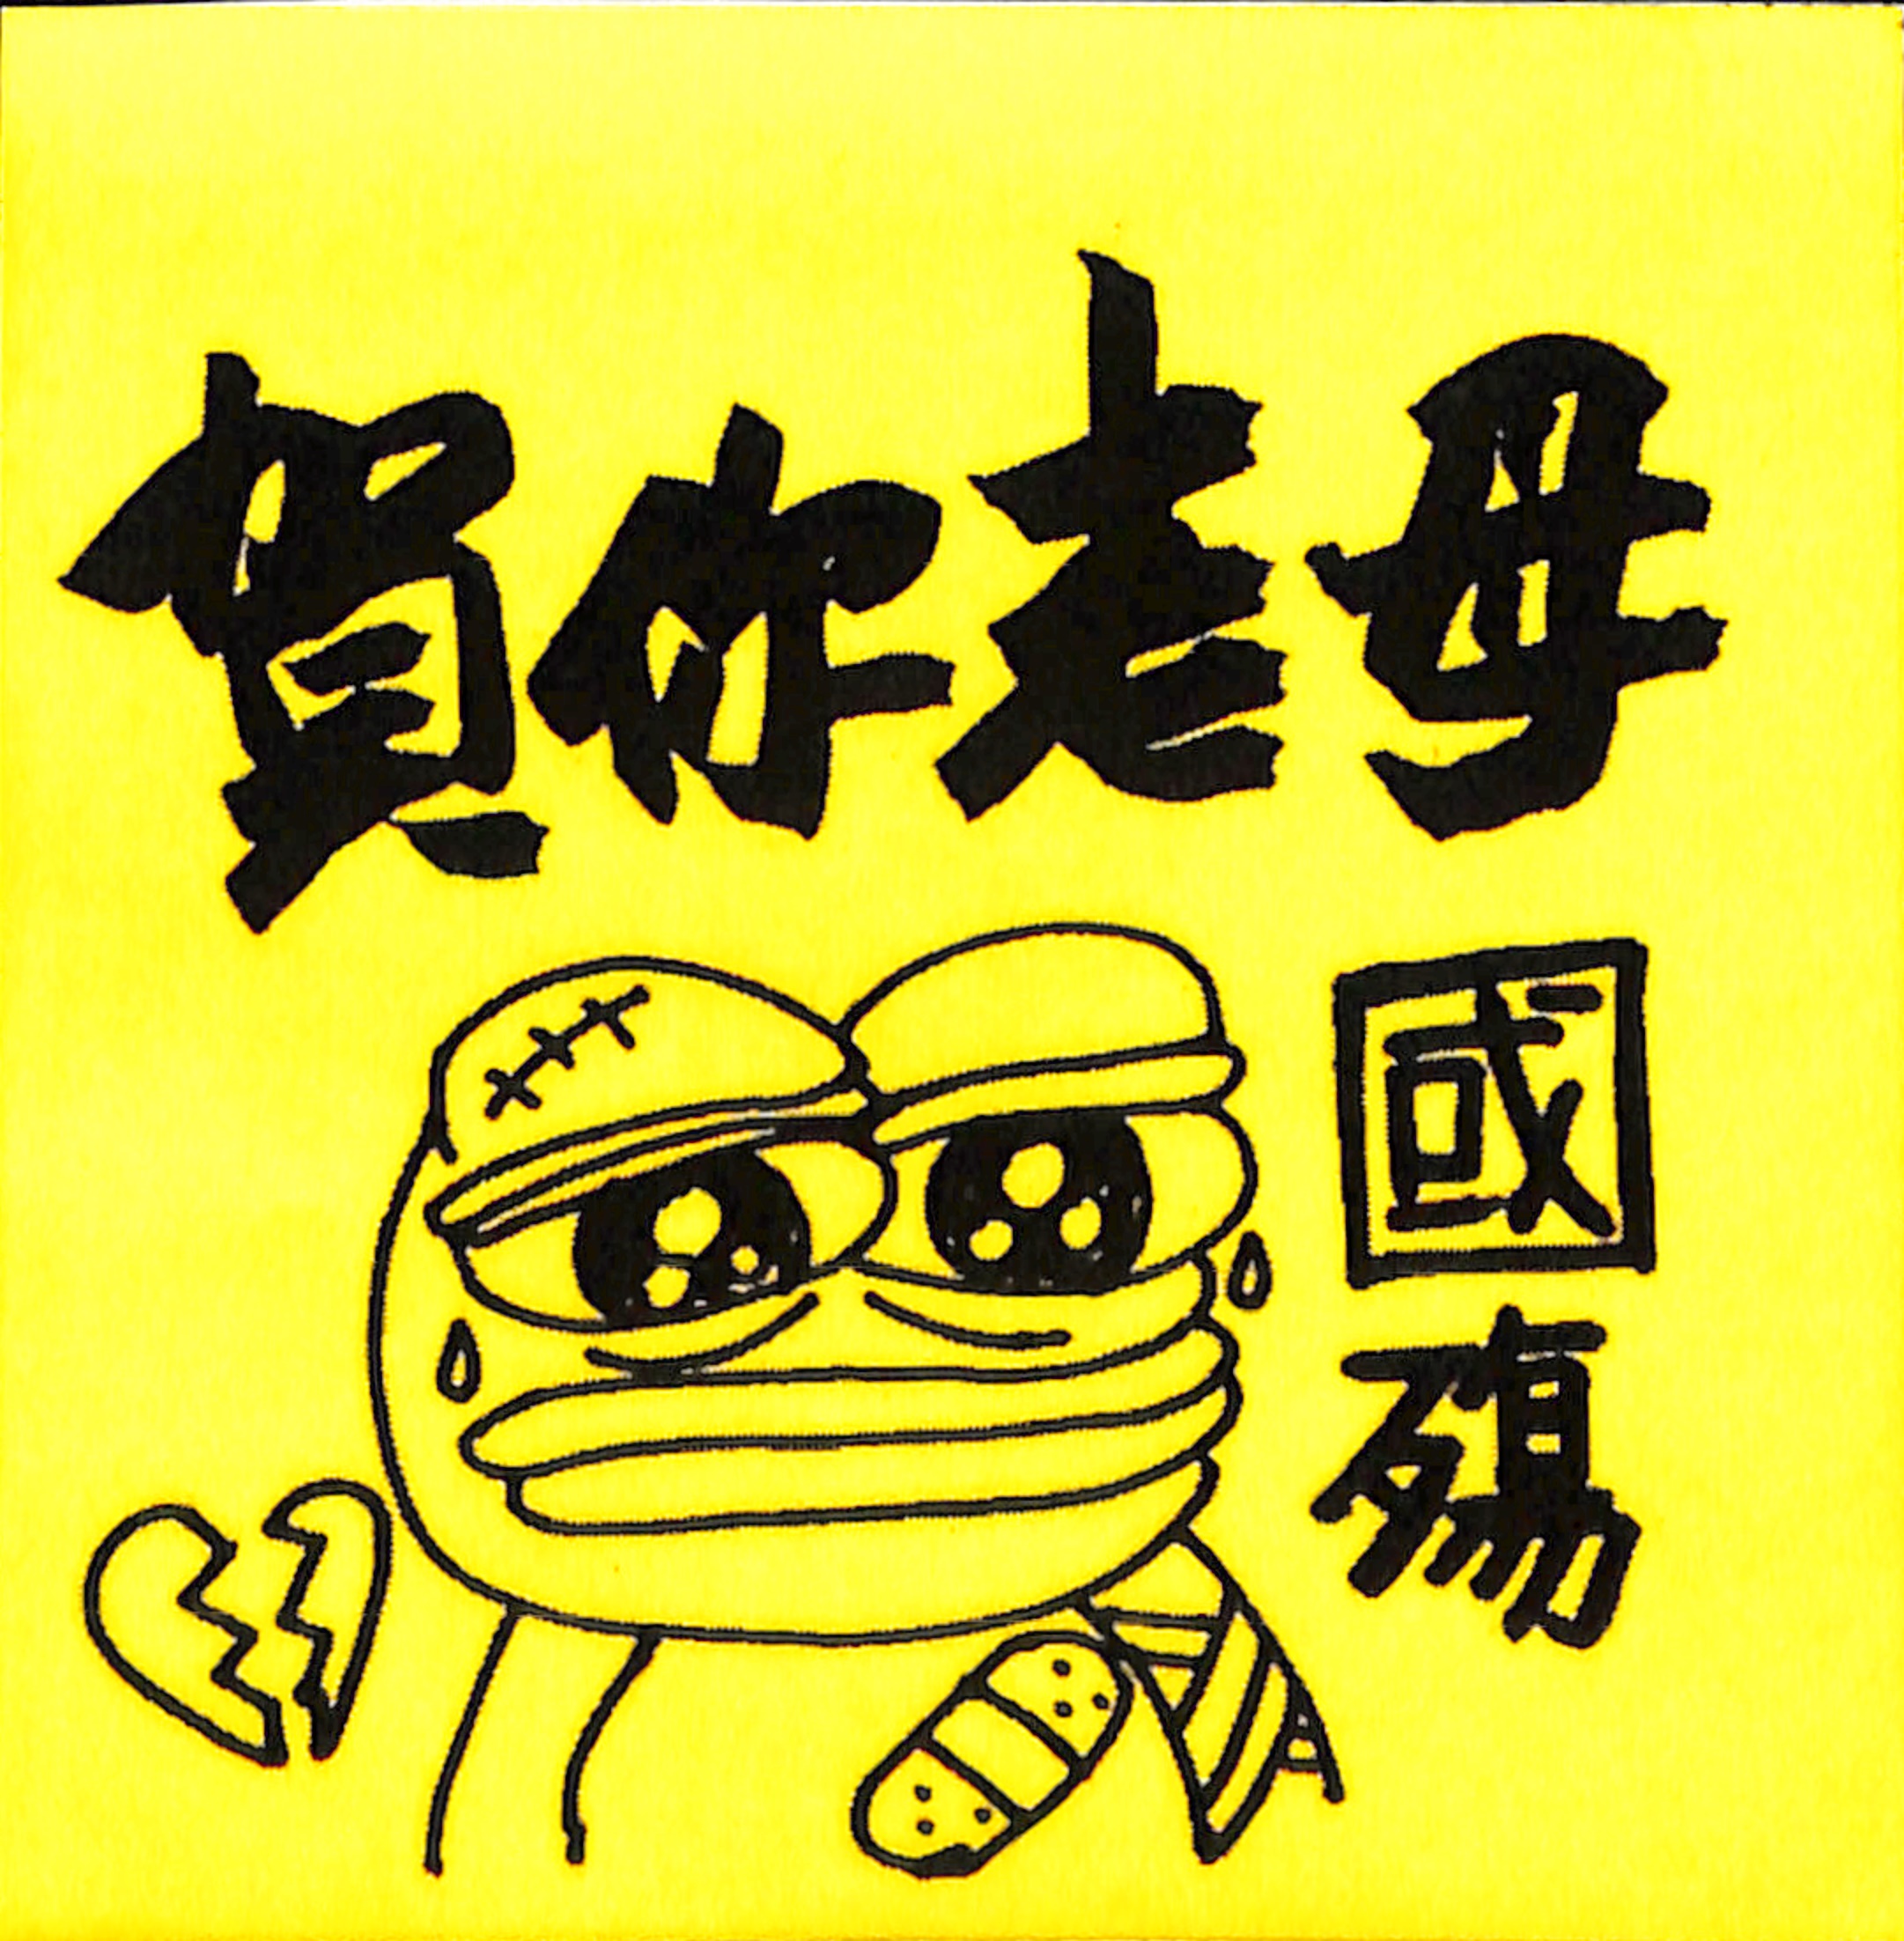 賀你老母
國
殤